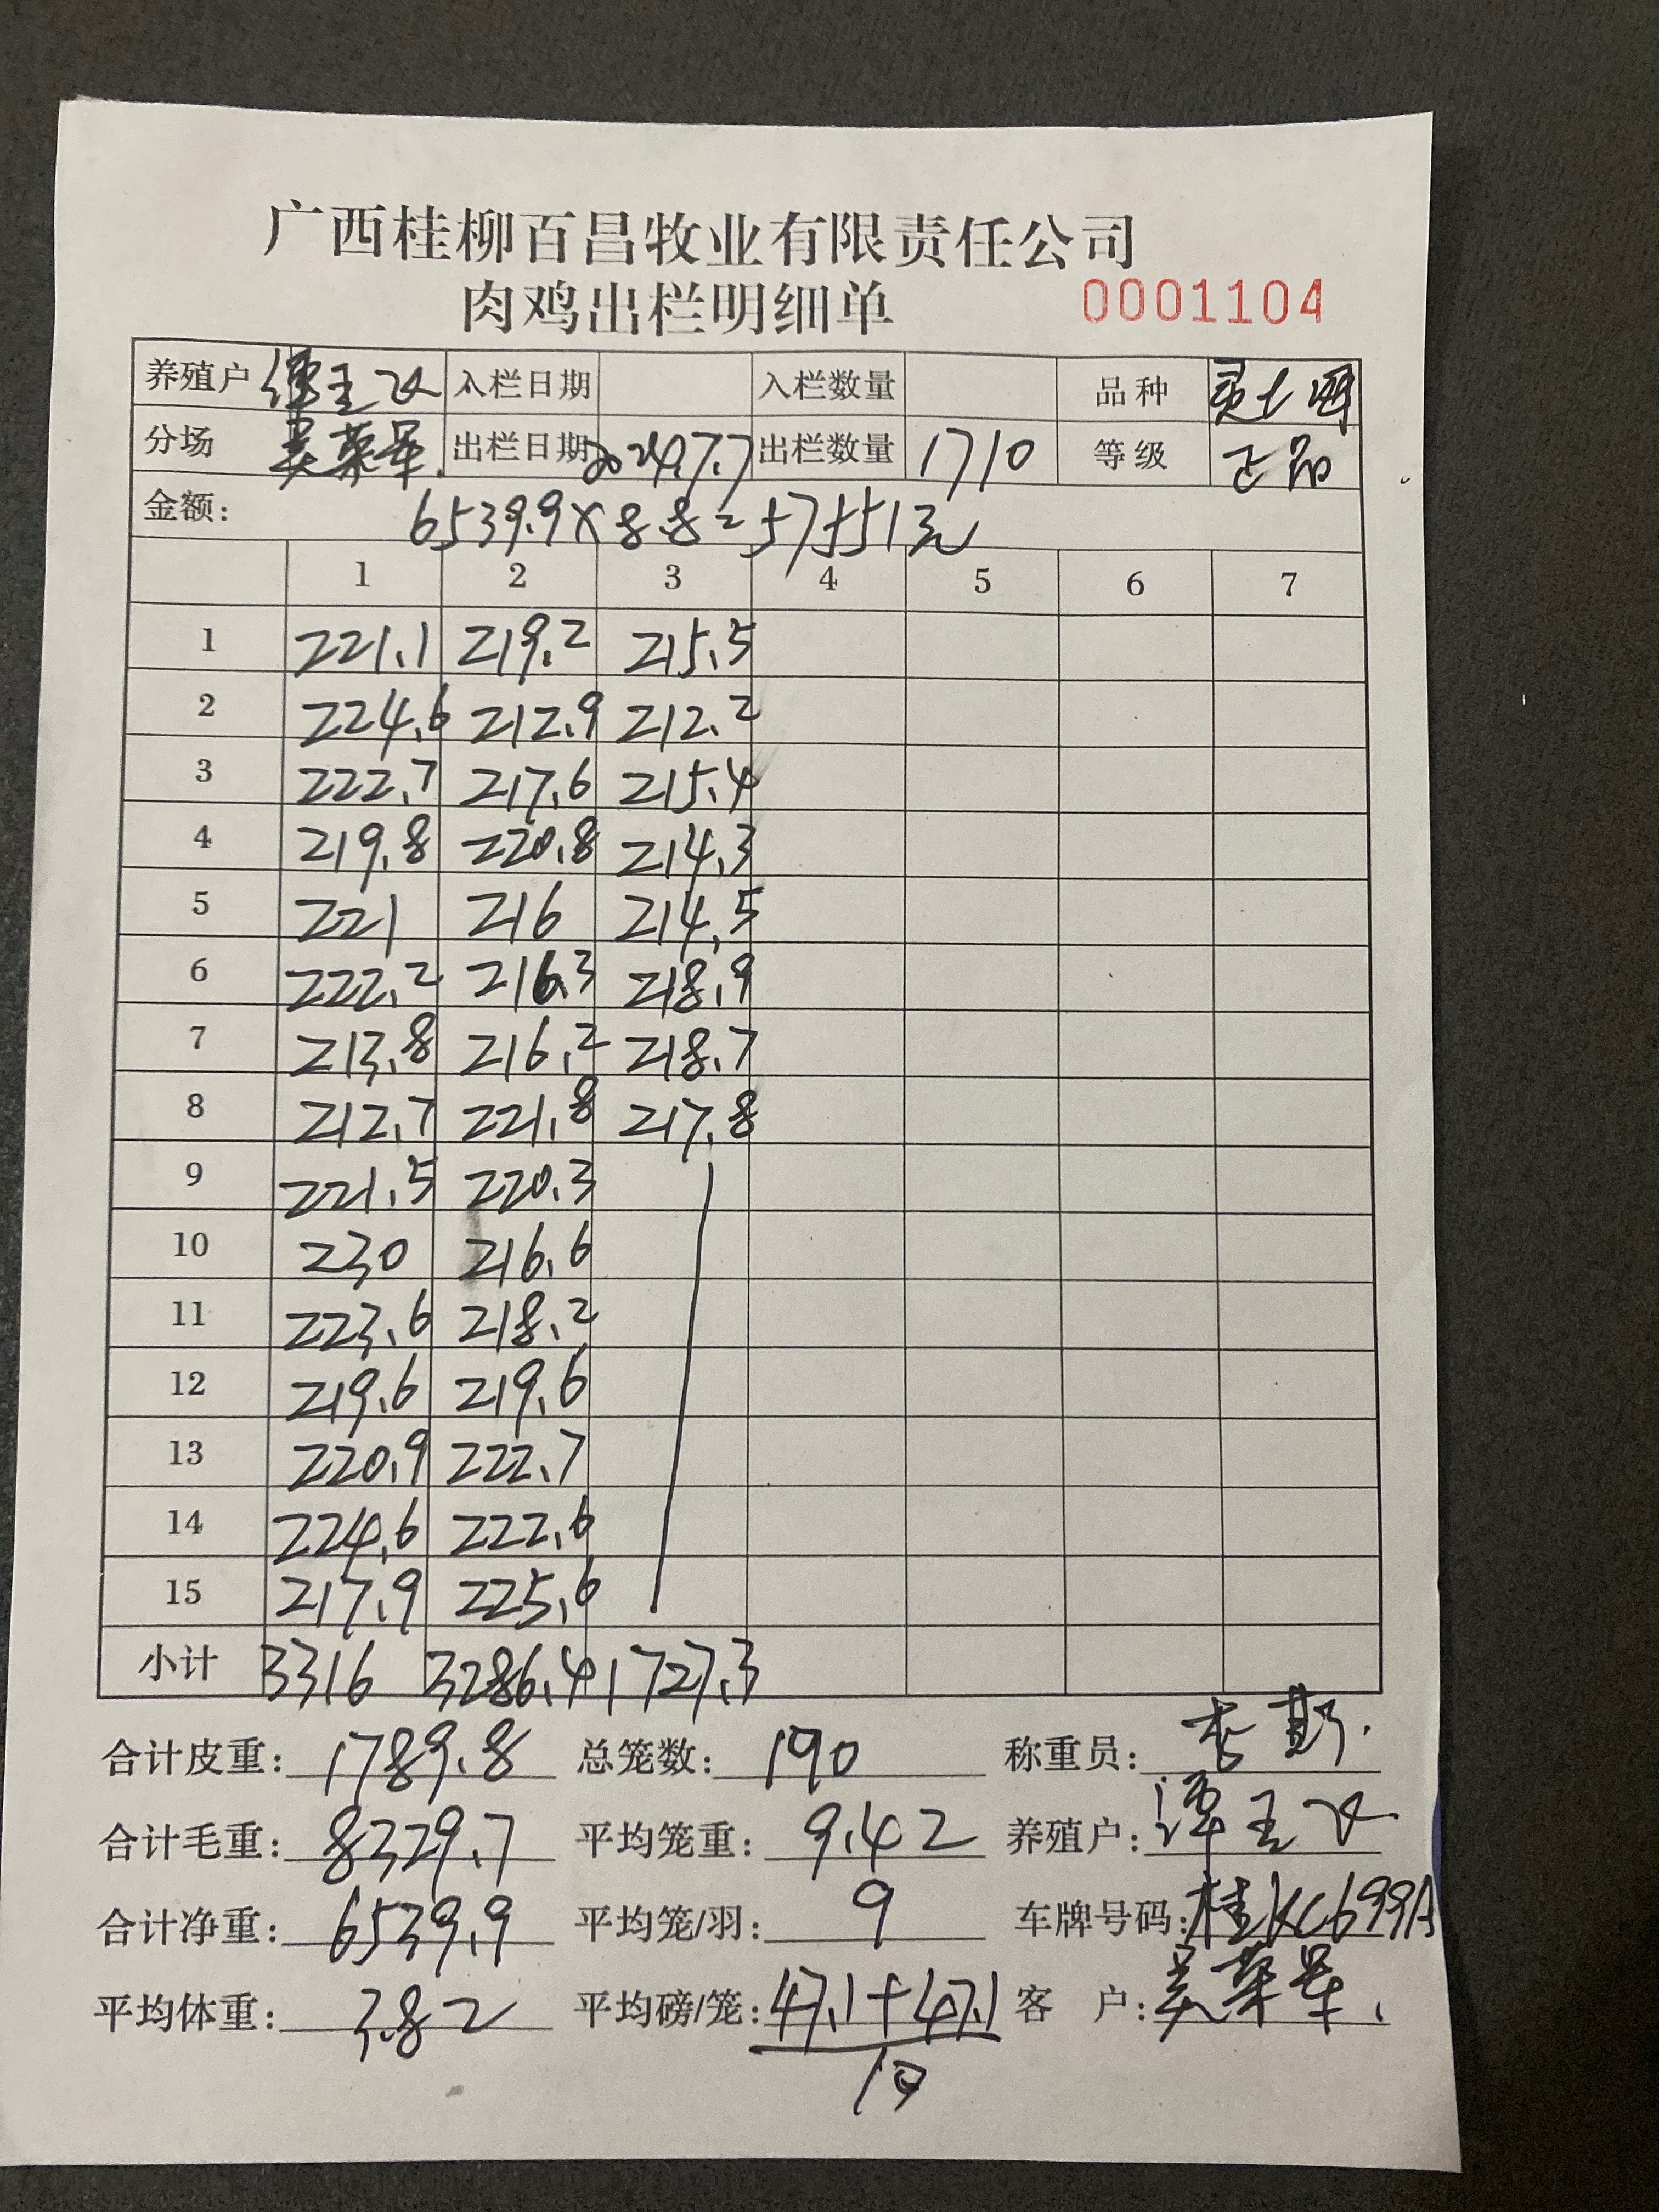 广西桂柳百昌牧业有限责任公司
肉鸡出栏明细单 0001104
养殖户 谭玉飞 入栏日期 入栏数量 品种 灵土
分场 出栏日期 2024.7.7 出栏数量 1710 等级 正品
金额: 6539.9×8.8=57551元
1 2 3 4 5 6 7
1 221.1 219.2 215.5
2 224.6 212.9 212.2
3 222.7 217.6 215.4
4 219.8 220.8 214.3
5 221 216 214.5
6 222.2 216.3 218.9
7 213.8 216.2 218.7
8 212.7 221.8 217.8
9 221.5 220.3
10 230 216.6
11 223.6 218.2
12 219.6 219.6
13 220.9 222.7
14 224.6 222.6
15 217.9 225.6
小计 3316 3286.4 1727.3
合计皮重: 1789.8 总笼数: 190 称重员: 李斯
合计毛重: 8329.7 平均笼重: 9.42 养殖户: 谭玉飞
合计净重: 6539.9 平均笼/羽: 9 车牌号码: 桂KC699A
平均体重: 3.82 平均磅/笼: 47.1+47.1 客 户:
10